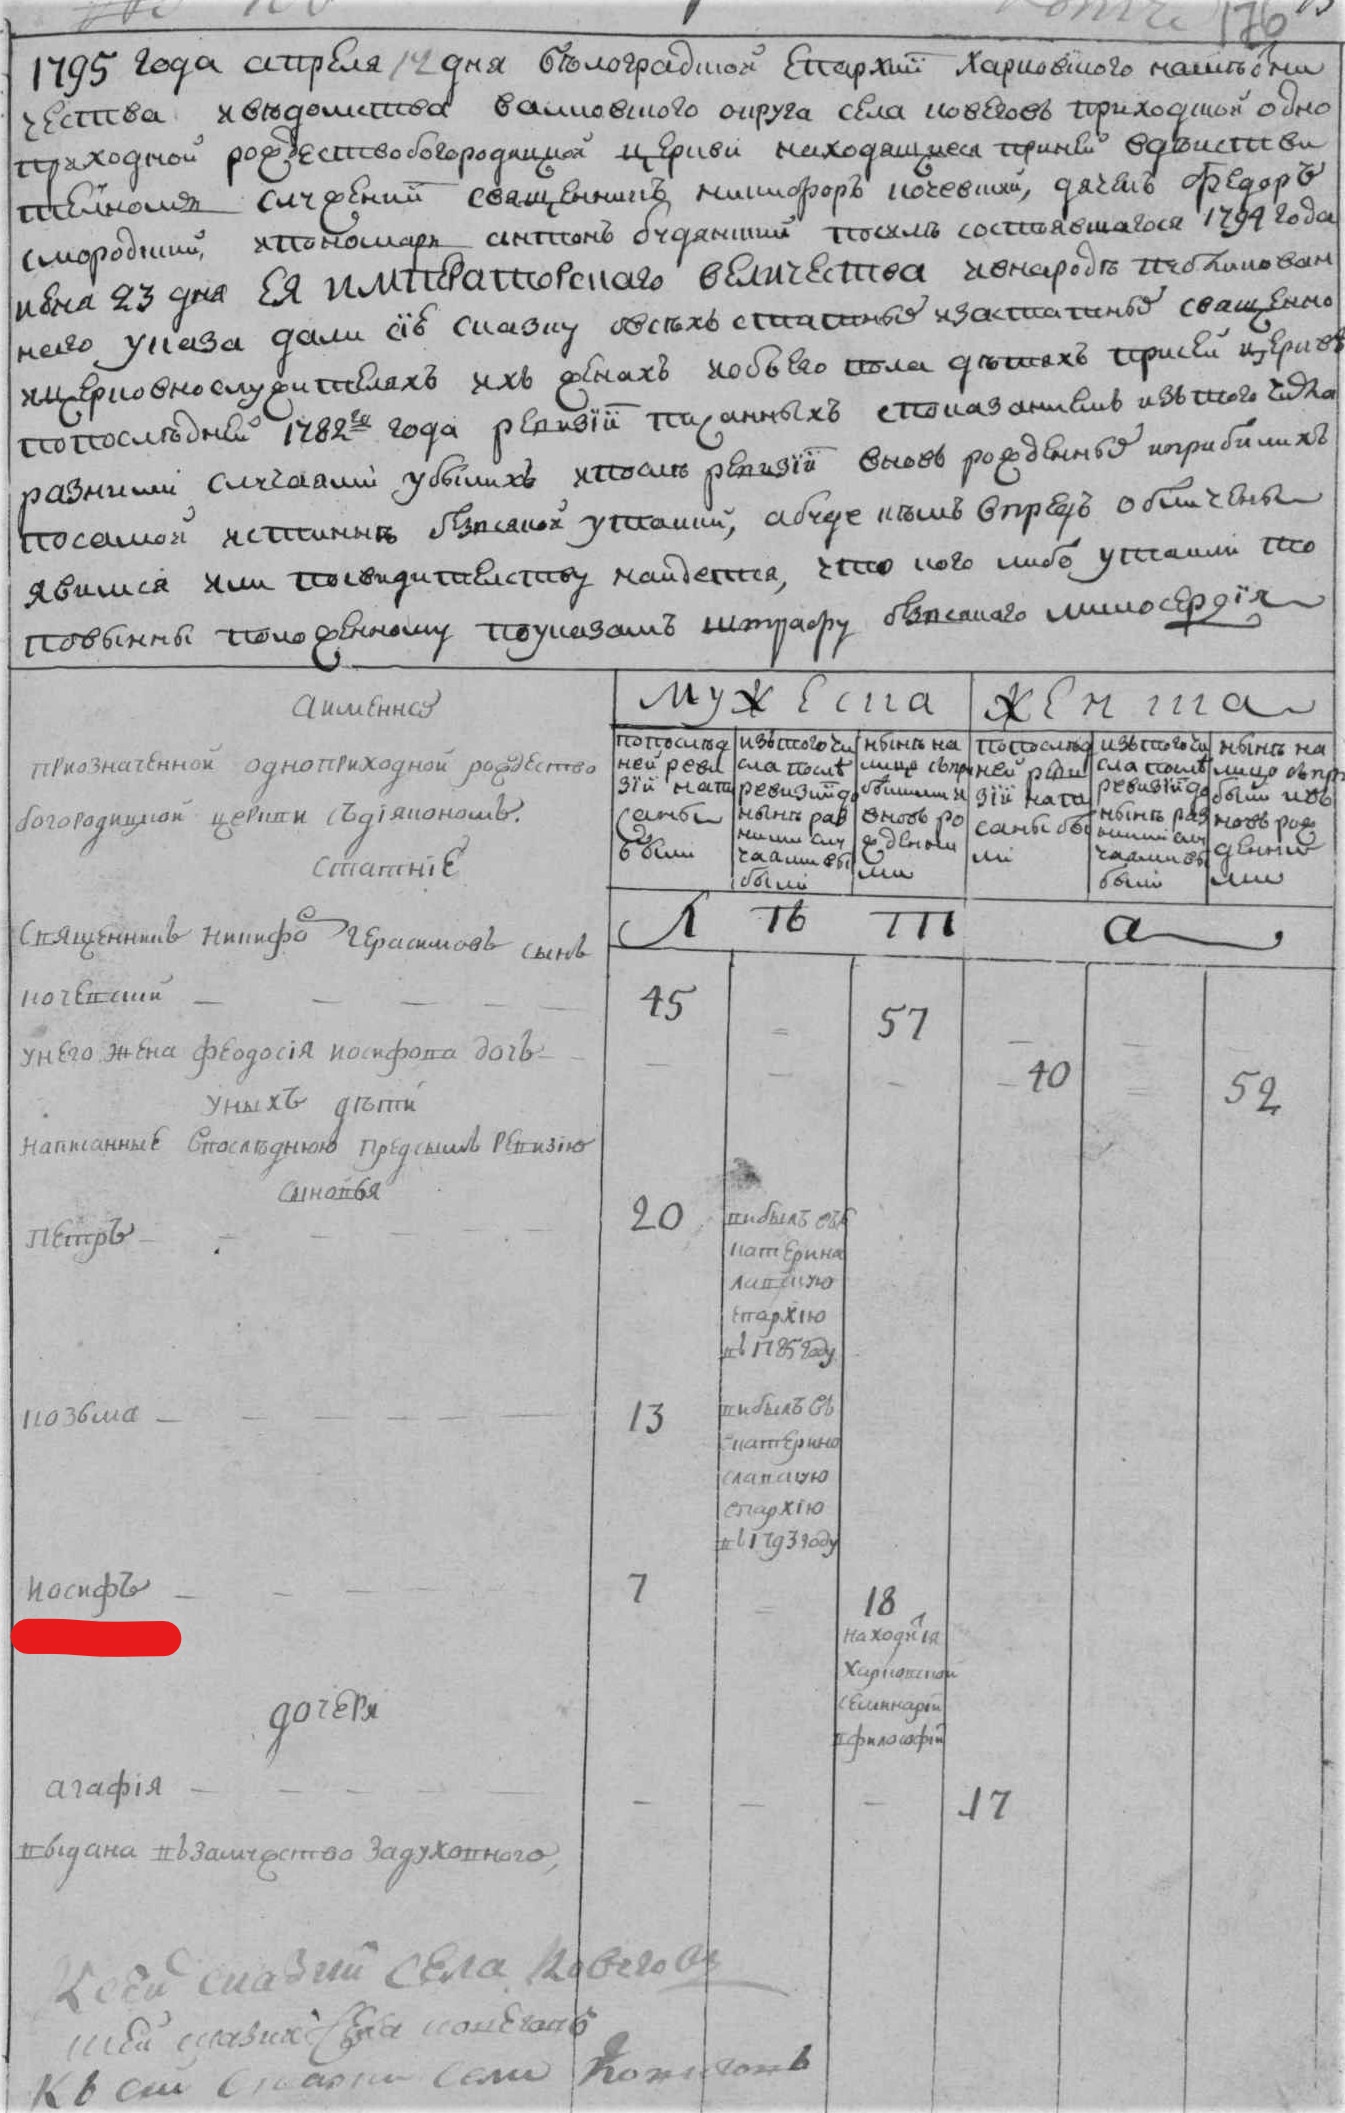 176
1795 года апреля 12 дня бѣлоградской Епархии харковского намѣсни
чества ивѣдомства валковского округа села ковеговъ приходской одно
приходной рождествобогородицкой церкви находящиеся приней вдѣистви
телномъ служении священникъ никифоръ кочевский, дячекъ Федоръ
смородский, ипономаръ антонъ будянский посилѣ состоявшагося 1794 года
июна 23 дня ЕЯ ИМПЕРАТОРСКаго ВЕЛИЧЕСТВА ивнародъ публикован
наго указа дали сїе сказку овсѣхъ статныхъ изастатныхъ священно
ицерковнослужителяхъ ихъ женахъ иобоего пола дѣтяхъ присей церквѣ
попоследней 1782го года ревизїи писанныхъ споказаниемъ изътого числа
разними случаями убылихъ ипослѣ ревизїи вновь рожденныхъ иприбилихъ
посамой истиннѣ безвсякой утайки, абуде кѣмъ впредъ обличены
явимся или посвидителству найдется, что кого либо утаили то
повынны положенному поуказамъ штрафу безвсякаго милосердїя
аименно
МУЖЕСКА ЖЕНСКА
приозначенной одноприходной рождество
богородицкой церкви съдїякономъ
статнїе
попослед
ней реви
зїи напи
саны
были
изътогочи
сла послѣ
ревизїи до
нынѣ раз
ними слу
чаами вы
были
нынѣ на
лицо съпри
бившими и
вновь ро
жденни
ми
попослед
ней реви
зїи напи
саны бы
ли
изътогочи
сла послѣ
ревизїи до
нынѣ раз
ними слу
чаами вы
были
нынѣ на
лицо съпри
были ивъ
новь рож
денни
ми
Л Ѣ Т а
Священникъ Никифо Герасимовъ сынъ
кочевский — — — — — 45 57
унего жена феодосїя иосифова дочъ 40 52
уныхъ дѣти
написанные впослѣднюю предсымъ ревизїю
сыновья
Петръ — — — — 20
вибылъ въЕ
катерино
лавскую
епархїю
въ1785году
козьма — — — — — 13
вибылъ въ
Екатерино
славскую
епархїю
въ1793году
Иосифъ — — — — 7 18
находится
Харковской
семинарїи
вфилософїи
дочеря
агафїя — — — — — 17
выдана взамужество задуховного,
Ксей сказки села Ковегов
сказки села ковеговъ
Къ сей сказки села Ковеговъ